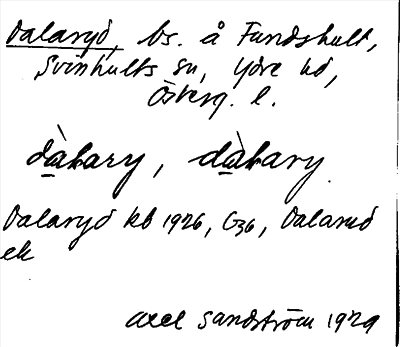 Dalaryd, bs. å Fundshult,
Svinhults sn, Ydre hd,
Österg. l.
dàlary, dàlary
Dalaryd kb 1926, G36, Dalarud
ek
Axel Sandström 1929